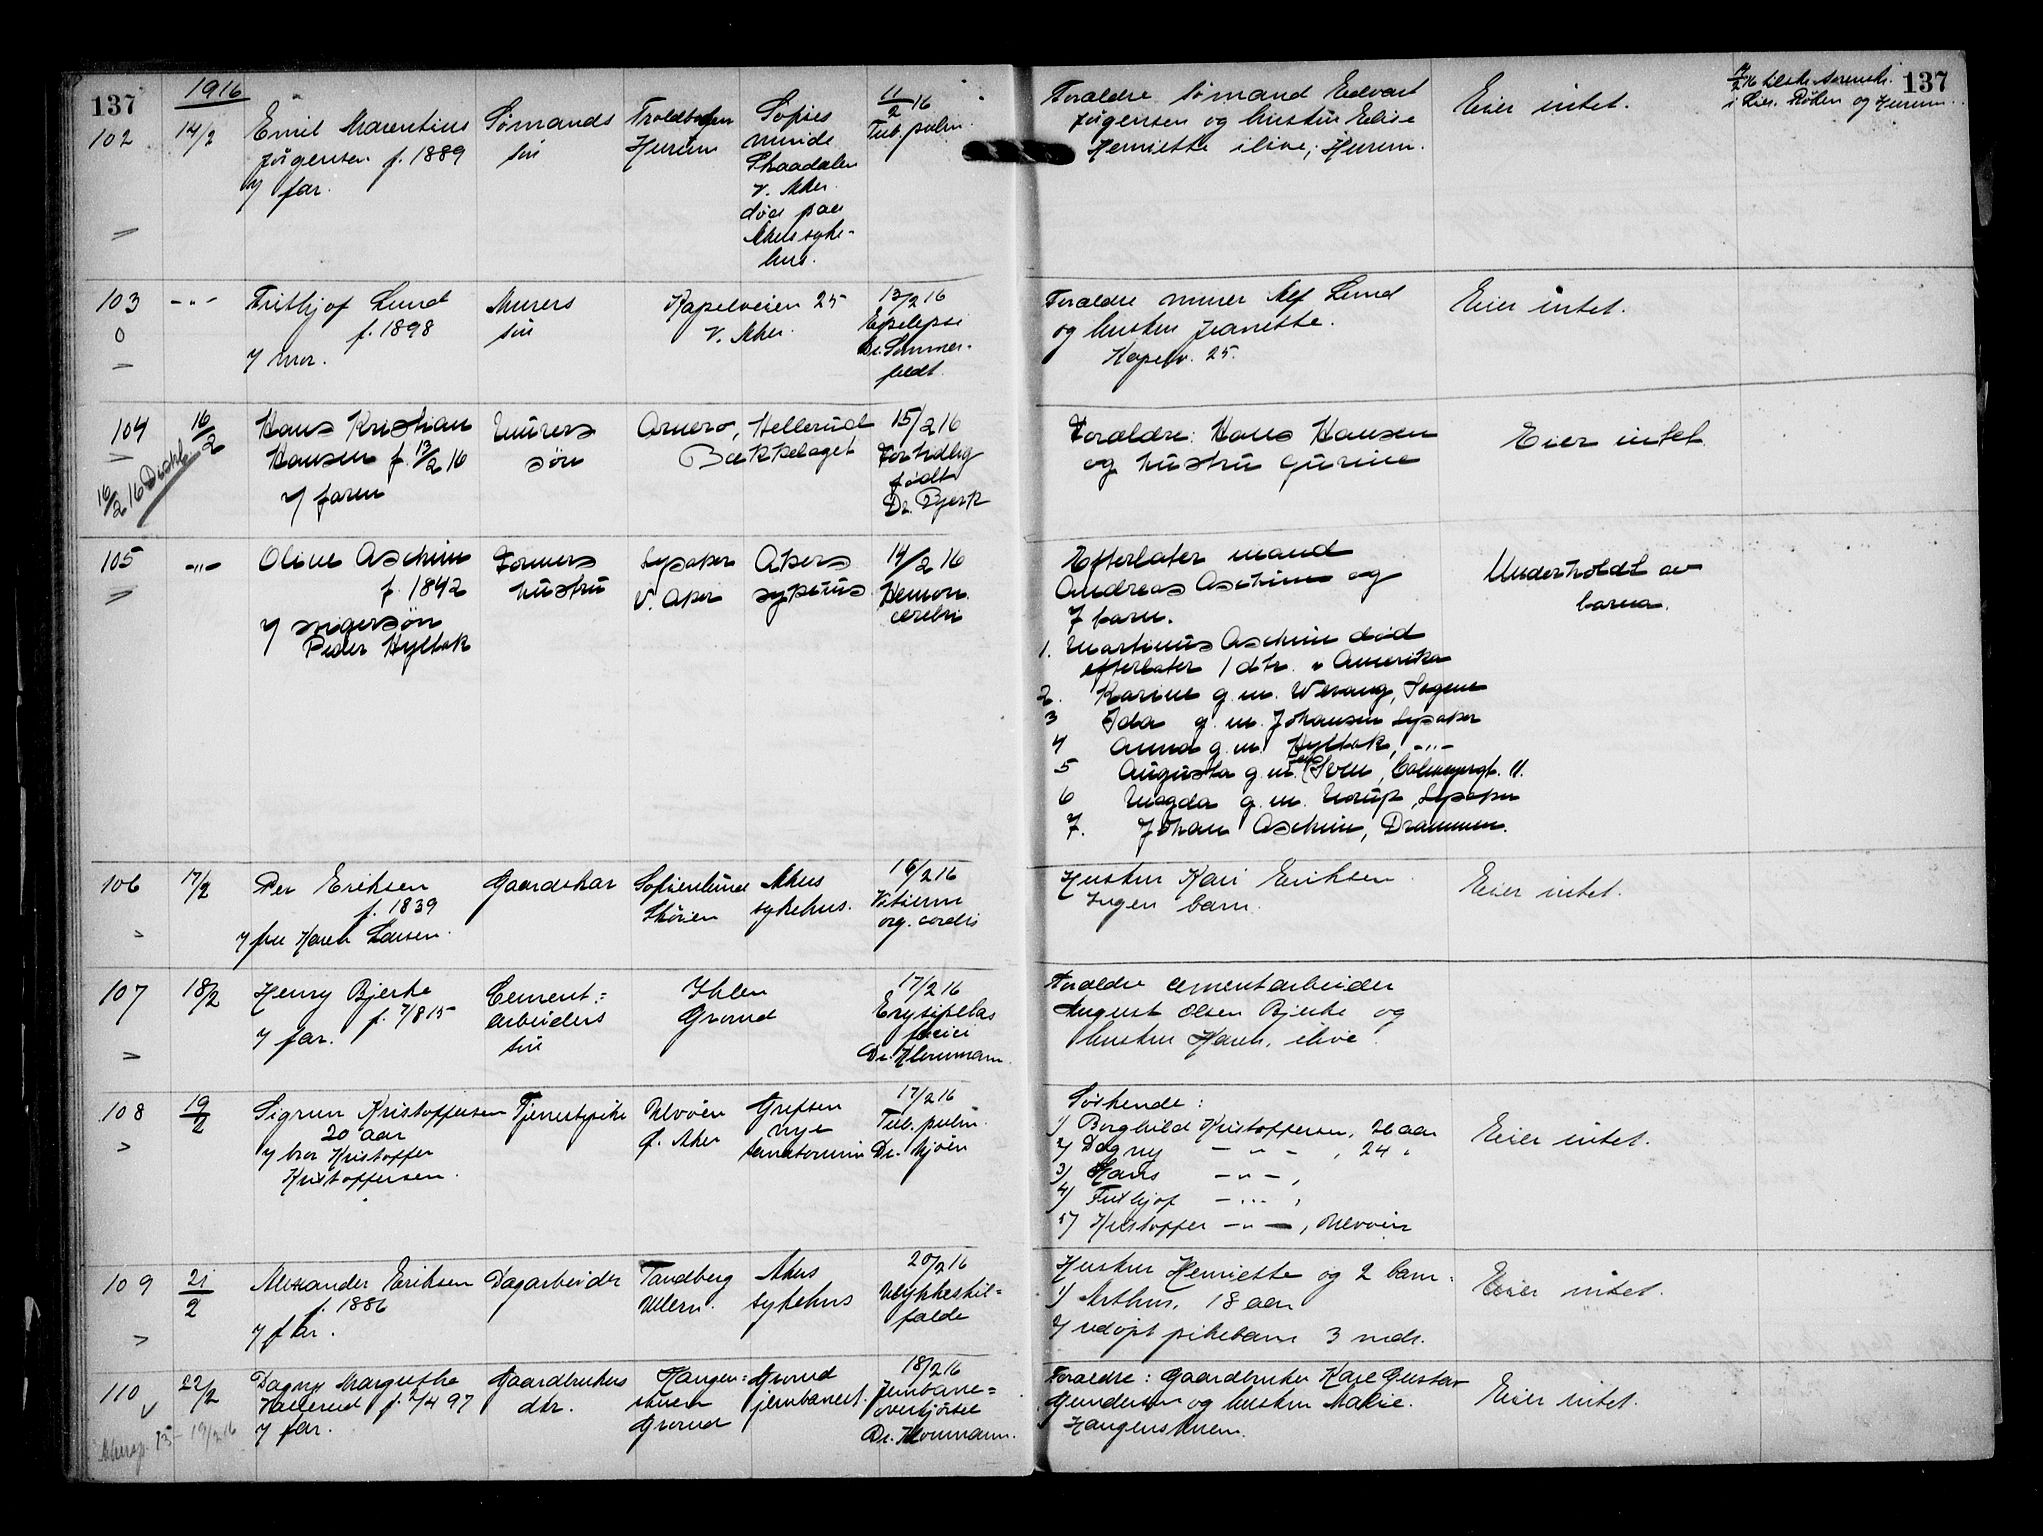 137
1916
102
14/2
Emil Marentius
Jørgensen f. 1889
v/ far.
Sømands
søn
Hurum
Sofies
minde
Skaadalen
V. Aker
død paa
Akers syke-
hus.
11/2 16
Tub. pulm.
Forældre sømand Edvart
Jørgensen og hustru Elise
Henriette ilive, Hurum.
Eier intet.
i Lier, Røken og Hurum.
137
103
-"-
Frithjof Lund
f. 1898
v/ bror.
Murers
søn
Kapelveien 25
V. Aker.
13/2 16
Epelepsi
Dr. Sommer-
feldt.
Forældre murer Alf Lund
og hustru Jeanette.
Kapelv. 25.
Eier intet.
104
16/2
Hans Kristian
Hansen f. 13/2 16
v/ faren
Murers
søn
Arnero, Hellerud
Bækkelaget
15/2 16
For tidlig
født
Dr. Bjerk
Forældre: Hans Hansen
og hustru Gurine
Eier intet.
16/2 16
105
-"-
Oline Aschim
f. 1842
v/ svigersøn
Peder Hyltok
Formers
hustru
Lysaker
V. Aker
Akers
sykehus
14/2 16
Hemorr.
cerebri
Efterlater mand
Andreas Aschim og
7 barn.
1. Martinus Aschim død
efterlater 1 dtr. i Amerika
2. Karine g.m. Werang, Sagene
3 Ida g.m. Johansen Lysaker
4 Anna g.m. Hyltok, -"-
5 Augusta g.m. Iven, Calmeyergt. 11.
6 Magda g.m. Lysaker
7. Johan Aschim, Drammen.
Underholdt av
barna.
106
17/2
Per Eriksen
f. 1839
v/ fru Karen Larsen.
Gaardskar
Sofienlund
Skøien
Akers
sykehus.
16/2 16
Vitium
org. cordis
Hustru Kari Eriksen.
Ingen barn.
Eier intet.
107
18/2
Henry Bjerke
f. 7/8 15
v/ far.
Cement=
arbeiders
søn
Ihlen
Grorud
17/2 16
Erysipelas
faciei
Dr. Hornmann.
Forældre cementarbeider
August Olsen Bjerke og
hustru Karen, ilive.
108
19/2
Sigrun Kristoffersen
20 aar
v/ bror Kristoffer
Kristoffersen.
Tjenestepike
Ulvøen
Ø. Aker
Grefsen
nye
sanatorium
17/2 16
Tub. pulm.
Dr. Mjøen
Søskende:
1) Borghild Kristoffersen, 26 aar
2) Dagny -"- , 24 "
3) Hans -"- ,
4) Frithjof -"- ,
5) Kristoffer -"- , Ulvøen
Eier intet.
109
21/2
Alexander Eriksen
f. 1886
v/ far.
Dagarbeider
Tandberg
Ullern.
Akers
sykehus
20/2 16
Ulykkestil=
fælde
Hustru Henriette og 2 barn.
1) Arthur, 18 aar
2) adopt pikebarn 3 mdr.
Eier intet.
110
22/2
Dagny Margrethe
Hallerud f. 2/4 97
v/ far.
Gaardbrukers
dtr.
Haugen=
stuen
Grorud
Grorud
jernbanest.
18/2 16
Jernbane=
overkjørsel
Dr. Hornmann.
Forældre: Gaardbruker Karl Gustav
Gundersen og hustru Malie.
Haugenstuen.
Eier intet.
19/2 16